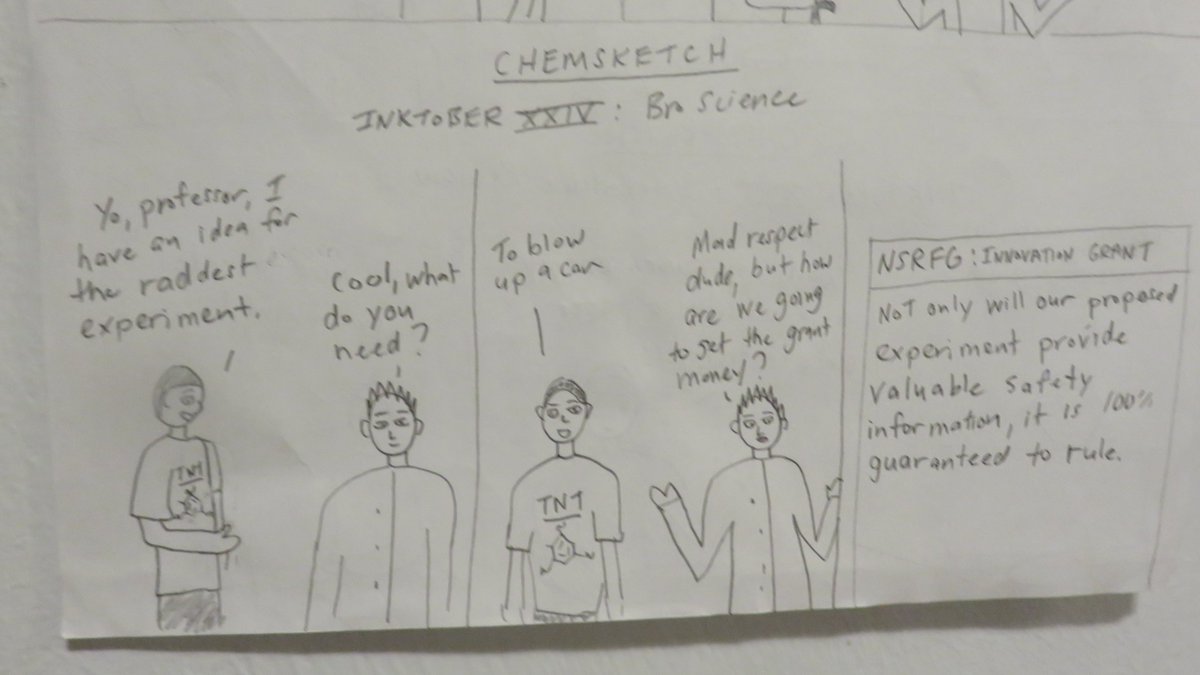 CHEMSKETCH
INKTOBER XXIV: Bro Science
Yo, professor, I
have an idea for
the raddest
experiment.
Cool, what
do you
need?
TNT
To blow
up a car
Mad respect
dude, but how
are we going
to get the grant
money?
TNT
NSRFG: INNOVATION GRANT
NOT only will our proposed
experiment provide
valuable safety
information, it is 100%
guaranteed to rule.